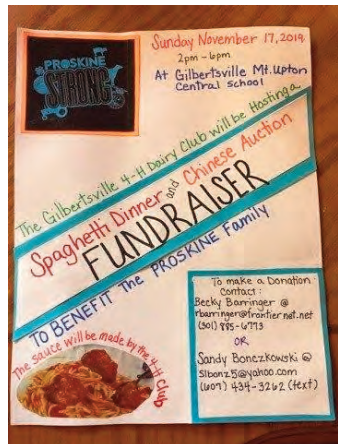 PROSKINE
STRONG
Sunday November 17, 2019
2pm - 6pm
At Gilbertsville Mt. Upton
Central School
The Gilbertsville 4-H Dairy Club will be Hosting a
Spaghetti Dinner and Chinese Auction
FUNDRAISER
TO BENEFIT The PROSKINE Family
The sauce will be made by the 4-H club
To make a Donation
Contact:
Becky Barringer @
rbarringer@frontiernet.net
(301) 885-6773
OR
Sandy Bonczkowski @
slbonz5@yahoo.com
(607) 434-3262 (text)